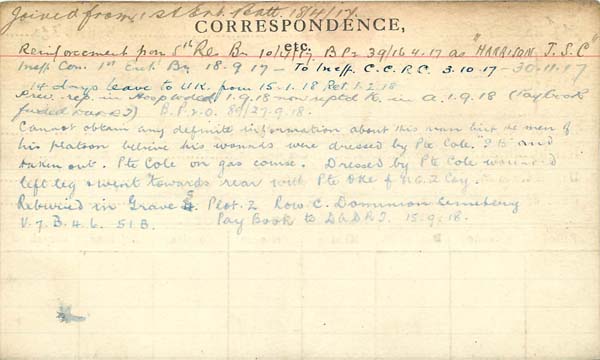 Joined from 1st Ent. Batt. 18/4/17.
CORRESPONDENCE,
etc.
Reinforcement from 5th Re. Bn 10/4/17 B.P. 39/16.4.17 as "HARRISON J.S.C"
Ineff. Com. 1st Ent. Bn 18.9.17 - To Ineff. C.C.P.C. 3.10.17 - 30.11.17
14 days leave to U.K. from 15.1.18 Ret. 1.2.18
Prev. rep. in Hosp wded 1.9.18 now reptd K. in a. 1.9.18 (Paybook
B.P.2.O. 89/27.9.18.
Cannot obtain any definite information about this man but the men of
his platoon believe his wounds were dressed by Pte Cole. and
taken out. Pte Cole on gas course. Dressed by Pte Cole wounded
left leg & went towards rear with Pte Oke of N.C. 2 Coy.
Reburied in Grave 5. Plot. 2 Row C. Dominion Cemetery
V. 7. B. 4. 6. 51 B. Pay Book to DADRT. 15.9.18.